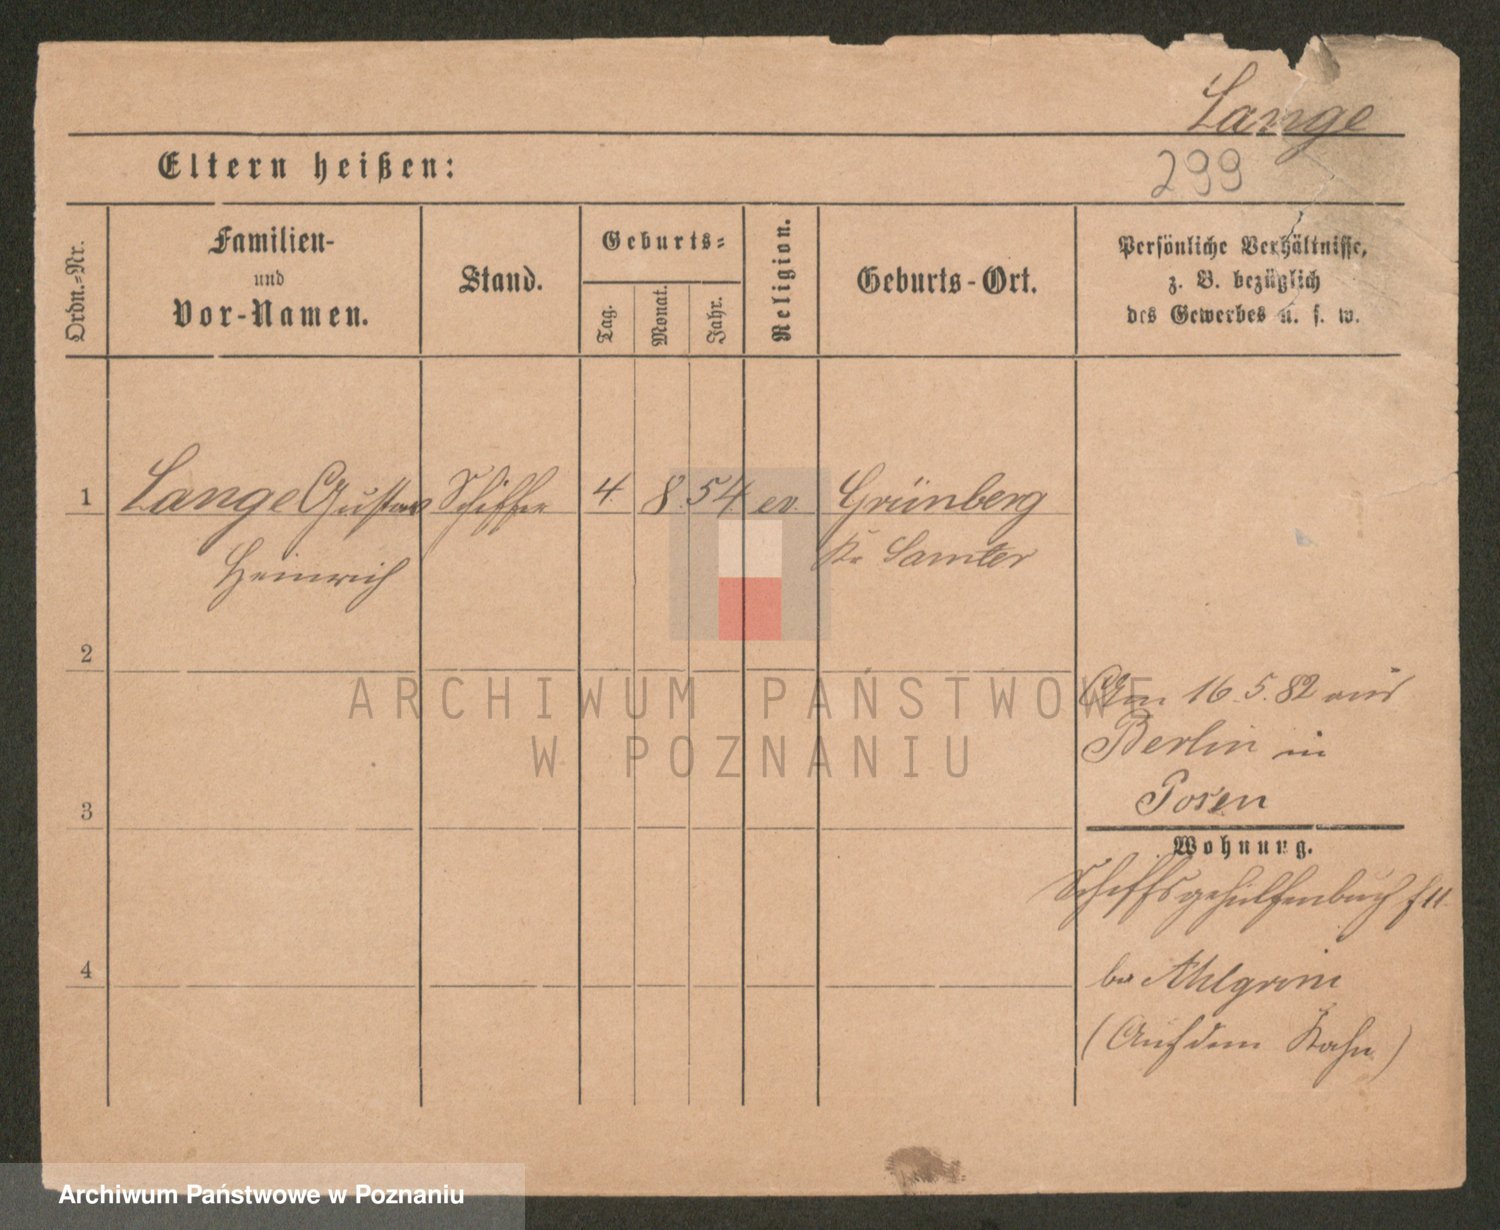 Lange
Eltern heißen:
299
Ordn.=Nr.
Familien-
und
Vor-Namen.
Stand.
Geburts=
Tag.
Monat.
Jahr.
Religion.
Geburts-Ort.
Persönliche Verhältnisse,
z. B. bezüglich
des Gewerbes u. s. w.
1 Lange Gustav Schiffer 4. 8. 54 ev. Grünberg
Heinrich Kr Samter
2
ARCHIWUM PAŃSTWOWE
W POZNANIU
Am 16.5.82 aus
Berlin in
Posen
3
Wohnung.
Schiffsgehülfenbuch
4
bei Ahlgrim
(Auf dem Kahn)
Archiwum Państwowe w Poznaniu